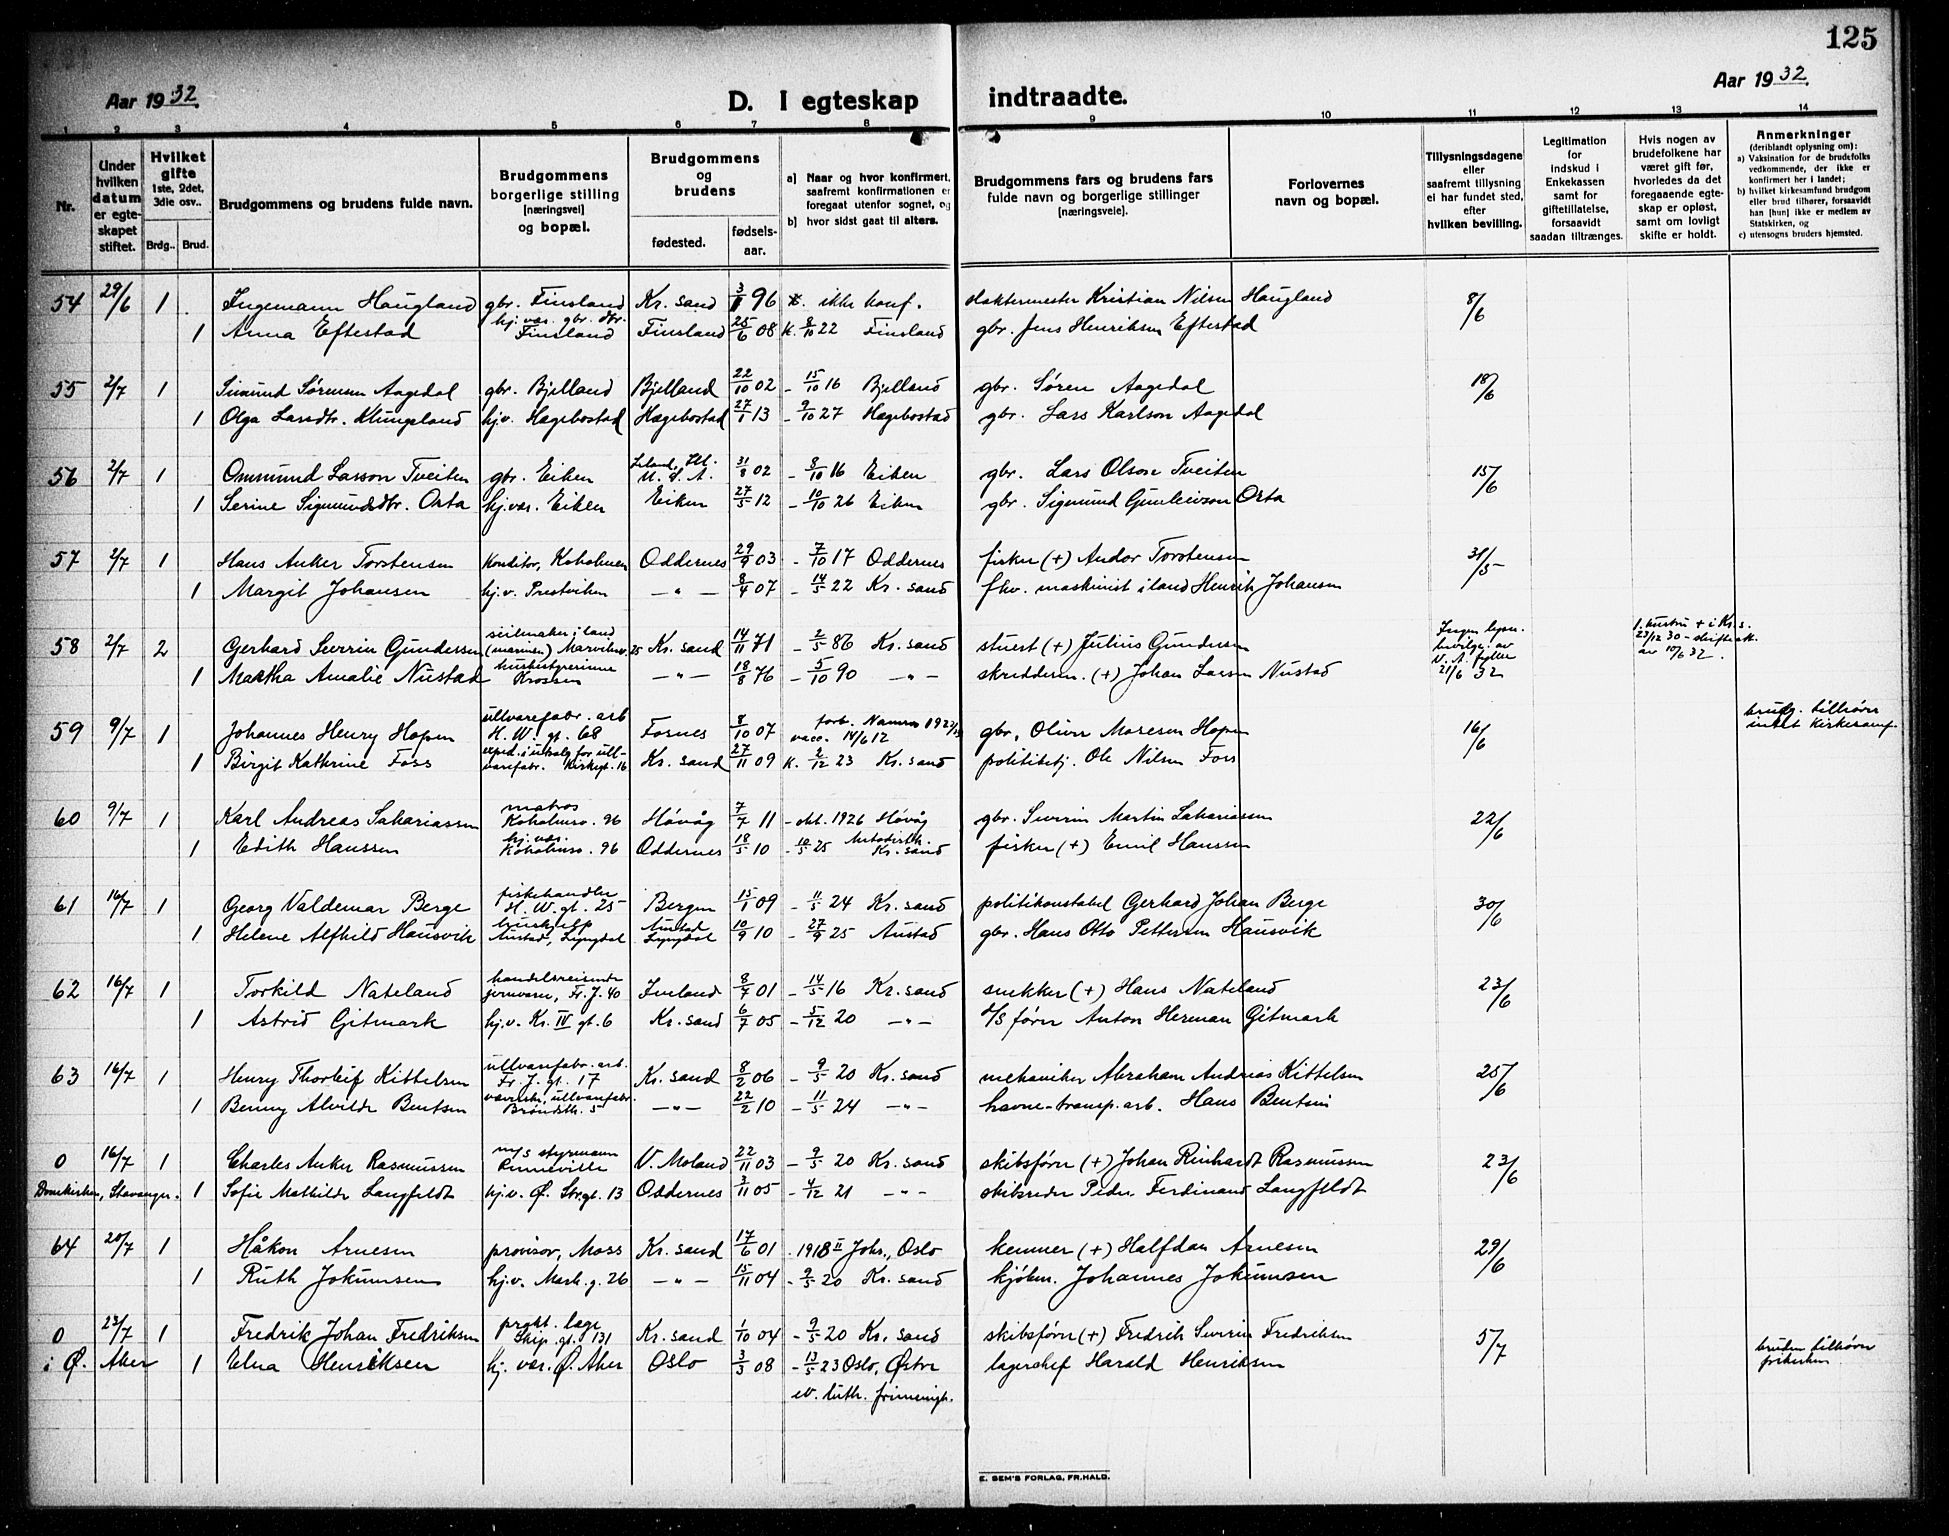 125
Aar 1932.
D. I egteskap indtraadte.
Aar 1932.
1 2 3 4 5 6 7 8 9 10 11 12 13 14
Nr.
Under hvilken datum er egteskapet stiftet.
Hvilket gifte 1ste, 2det, 3die osv..
Brdg.. Brud.
Brudgommens og brudens fulde navn.
Brudgommens borgerlige stilling [næringsvei] og bopæl.
Brudgommens og brudens
fødested. fødselsaar.
a) Naar og hvor konfirmert, saafremt konfirmationen er foregaat utenfor sognet, og
b) hvor sidst gaat til alters.
Brudgommens fars og brudens fars fulde navn og borgerlige stillinger [næringsveie].
Forlovernes navn og bopæl.
Tillysningsdagene eller saafremt tillysning ei har fundet sted, efter hvilken bevilling.
Legitimation for indskud i Enkekassen samt for giftetillatelse, forsaavidt saadan tiltrænges.
Hvis nogen av brudefolkene har været gift før, hvorledes da det foregaaende egteskap er opløst, samt om lovligt skifte er holdt.
Anmerkninger (deriblandt oplysning om):
a) Vaksination for de brudefolks vedkommende, der ikke er konfirmert her i landet;
b) hvilket kirkesamfund brudgom eller brud tilhører, forsaavidt han [hun] ikke er medlem av Statskirken, og
c) utensogns bruders hjemsted.
54 29/6 1 Ingemann Haugland gbr. Finsland Kr. sand 96 ikke konf. slaktermester Kristian Nilsen Haugland 8/6
1 Anna Eftestad hj. vas. gbr. dtr. Finsland Finsland 25/6 08 K. 8/10 22 Finsland gbr. Jens Henriksen Eftestad
55 2/7 1 Simund Sørensen Aagedal gbr. Bjelland Bjelland 22/10 02 - 15/10 16 Bjelland gbr. Søren Aagedal 18/6
1 Olga Larsdtr. Klungeland hj.v. Hægebostad Hægebostad 27/1 13 - 9/10 27 Hægebostad gbr. Lars Karlson Aagedal
56 2/7 1 Ommund Larsson Tveiten gbr. Eiken Leland, Ill. U. S. A. 31/8 02 - 8/10 16 Eiken gbr. Lars Olson Tveiten 15/6
1 Serine Sigmundsdtr. Osta hj.vas. Eiken Eiken 27/5 12 - 10/10 26 Eiken gbr. Sigmund Gunleivson Osta
57 2/7 1 Hans Anker Torstensen konditor, Kobolmen Oddernes 29/9 03 - 7/10 17 Oddernes fisker (+) Andor Torstensen 31/5
1 Margit Johansen hj.v. Prestviken — " — 8/4 07 - 14/5 22 Kr. sand fhv. maskinist i land Henrik Johansen
58 2/7 2 Gerhard Severin Gundersen seilmaker i land (marinen) Marviksv. 25 Kr. sand 14/11 71 - 2/5 86 Kr. sand stuert (+) Julius Gundersen Ingen lysn. bevilgn. av V. A. fylke 21/6 32 1. hustru + i Kr.s. 23/12 30 - skifteatt. av 10/6 32.
1 Martha Amalie Nustad husbestyrerinne Krossen — " — 18/8 76 - 5/10 90 — " — skredderm. (+) Johan Larsen Nustad
59 9/7 1 Johannes Henry Hopen ullvarefabr. arb H. W. gt. 68 Fosnes 8/10 07 forb. Namsos vacc. 14/6 12 gbr. Oliver Moresen Hopen 16/6 brudg. tilhører intet kirkesamf.
1 Birgit Kathrine Foss eksped. i utsalg for ullvarefabr. Kirkegt. 16 Kr. sand 27/11 09 K. 2/12 23 Kr. sand politibetj. Ole Nilsen Foss
60 9/7 1 Karl Andreas Sakariassen matros Kobolmsv. 96 Høvåg 7/7 11 - okt. 1926 Høvåg gbr. Severin Martin Sakariassen 22/6
1 Edith Hanssen hj. vas. Kobolmsv. 96 Oddernes 18/5 10 - 10/5 25 Metodistk. Kr. sand fisker (+) Emil Hanssen
61 16/7 1 Georg Valdemar Berge fiskehandler H. W. gt. 25 Bergen 15/1 09 - 11/5 24 Kr. sand politikonstabel Gerhard Johan Berge 30/6
1 Helene Alfhild Hausvik Austad, Lyngdal Austad Lyngdal 10/9 10 - 27/9 25 Austad gbr. Hans Otto Pettersen Hausvik
62 16/7 1 Torkild Nateland handelsreisende jernvarer, Fr. J. 40 Iveland 8/7 01 - 14/5 16 Kr. sand snekker (+) Hans Nateland 23/6
1 Astrid Gitmark hj.v. Kr. IV gt. 6 Kr. sand 6/7 05 - 5/12 20 — " — d/s fører Anton Herman Gitmark
63 16/7 1 Henry Thorleif Kittelsen ullvarefabr. arb. Fr. J. gt. 17 Kr. sand 8/2 06 - 9/5 20 Kr. sand mekaniker Abraham Andreas Kittelsen 25/6
1 Benny Alvilde Bentsen væversk. ullvarefabr. Brøndstk. 5 — " — 22/2 10 - 11/5 24 — " — havne-transp. arb. Hans Bentsen
0 16/7 1 Charles Anker Rasmussen m/s styrmann V. Moland 22/11 03 - 9/5 20 Kr. sand skibsfører (+) Johan Reinhardt Rasmussen 23/6
Domkirken, Stavanger. 1 Sofie Mathilde Langfeldt hj.v. Ø. Str.gt. 13 Oddernes 3/11 05 - 4/12 21 — " — skibsreder Peder Ferdinand Langfeldt
64 20/7 1 Håkon Arnesen provisor, Moss Kr. sand 17/6 01 - 1918 II Johs., Oslo kemner (+) Halfdan Arnesen 29/6
1 Ruth Jokumsen hj.v. Mark. g. 26 — " — 15/11 04 - 9/5 20 Kr. sand kjøbm. Johannes Jokumsen
0 23/7 1 Fredrik Johan Fredriksen prakt. læge Skip. gt. 131 Kr. sand 1/10 04 - 9/5 20 Kr. sand skibsfører (+) Fredrik Severin Fredriksen 5/7
i Ø. Aker 1 Elna Henriksen hj. vas. Ø. Aker Oslo 3/3 08 - 13/5 23 Oslo, Østre ev. luth. frimenigh. lagerchef Harald Henriksen bruden tilhører frikirken
E. SEM'S FORLAG, FR.HALD.